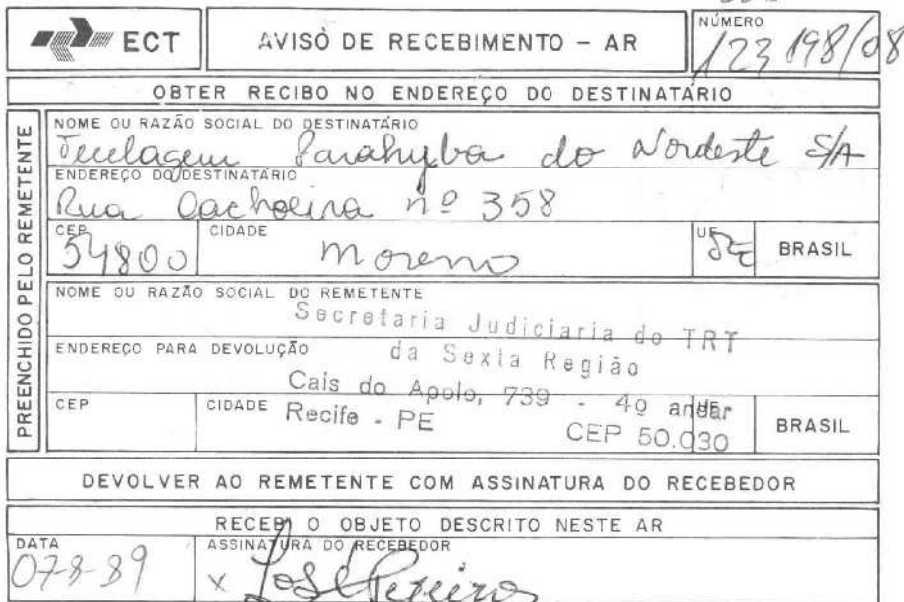 ECT
AVISO DE RECEBIMENTO - AR
NÚMERO
123 198/08
OBTER RECIBO NO ENDEREÇO DO DESTINATÁRIO
PREENCHIDO PELO REMETENTE
NOME OU RAZÃO SOCIAL DO DESTINATÁRIO
Tecelagem Parahyba do Nordeste S/A
ENDEREÇO DO DESTINATÁRIO
Rua Cachoeira nº 358
CEP CIDADE UF
54800 Moreno PE BRASIL
NOME OU RAZÃO SOCIAL DO REMETENTE
Secretaria Judiciaria do TRT
ENDEREÇO PARA DEVOLUÇÃO
da Sexta Região
Cais do Apolo, 739 - 4º andar
CEP CIDADE Recife - PE UF
CEP 50.030 BRASIL
DEVOLVER AO REMETENTE COM ASSINATURA DO RECEBEDOR
RECEBI O OBJETO DESCRITO NESTE AR
DATA ASSINATURA DO RECEBEDOR
07-8-89 x José Pereira